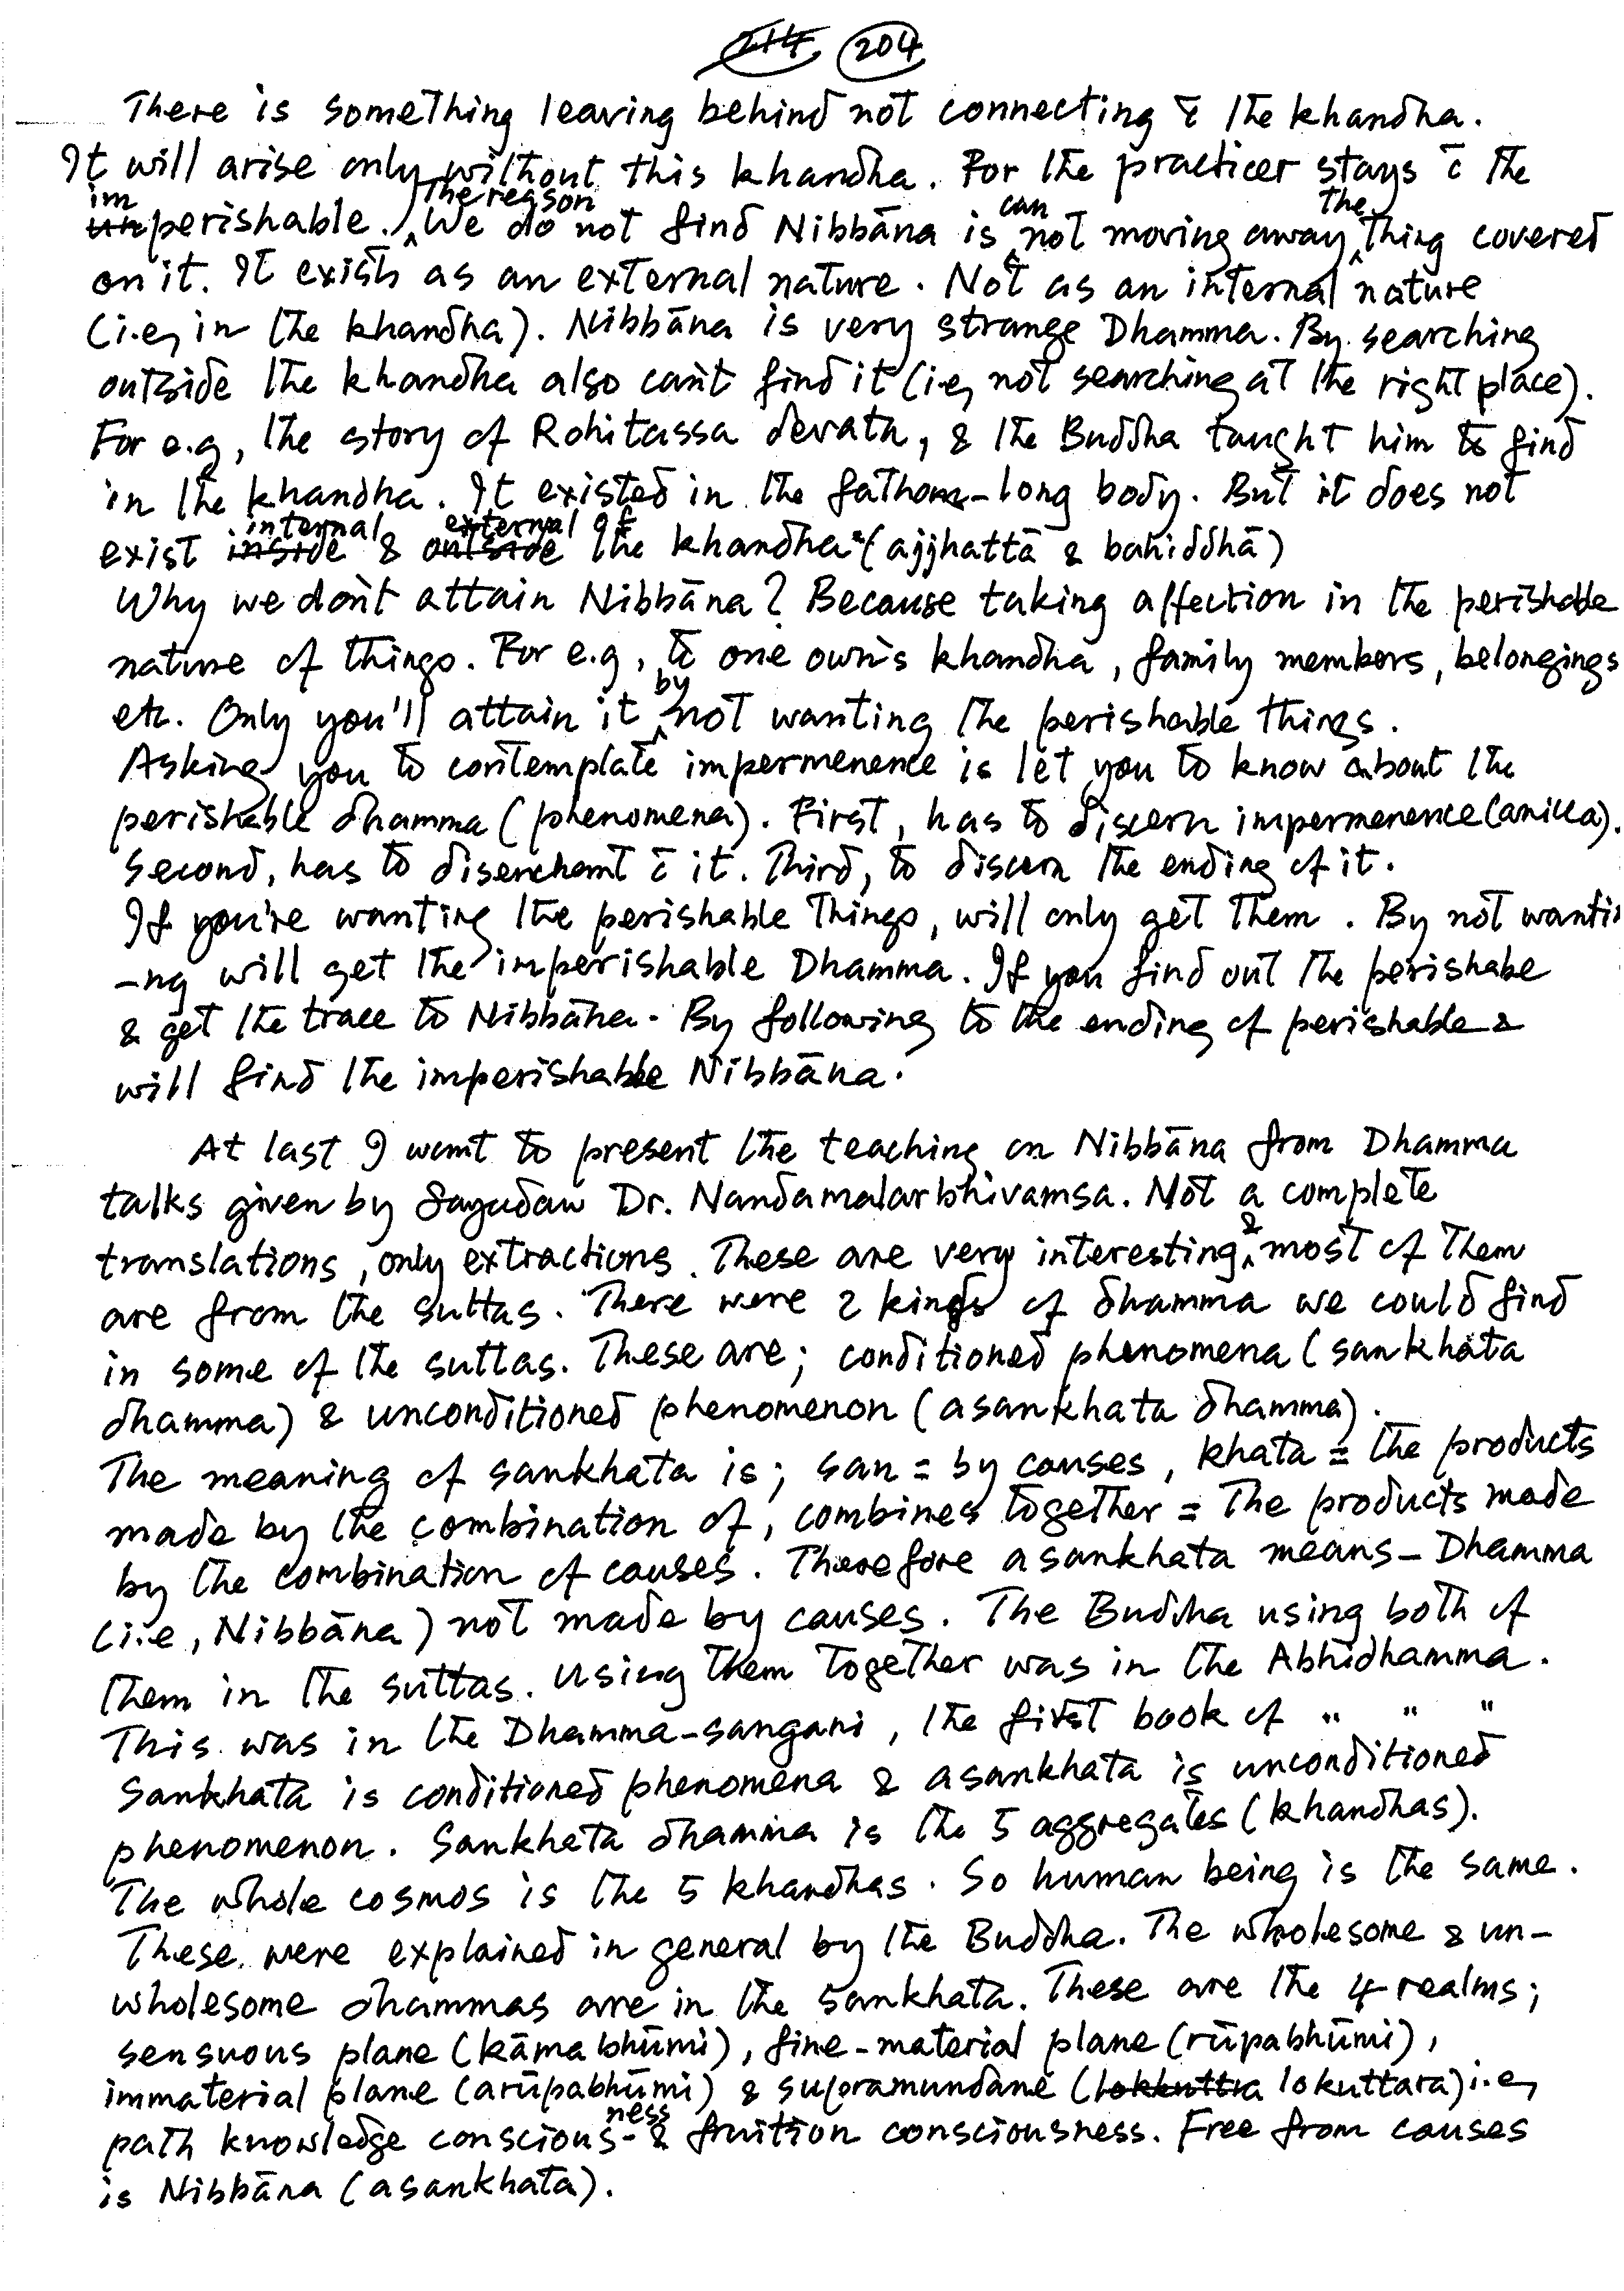 214 204
There is something leaving behind not connecting c̄ the khandha.
It will arise only without this khandha. For the practicer stays c̄ the
imperishable. The reason We do not find Nibbāna is can not moving away the thing covered
on it. It exists as an external nature. Not as an internal nature
(i.e, in the khandha). Nibbāna is very strange Dhamma. By searching
outside the khandha also can't find it (i.e, not searching at the right place).
For e.g, the story of Rohitassa devata, & the Buddha taught him to find
in the khandha. It existed in the fathom-long body. But it does not
exist internal & external of the khandha (ajjhattā & bahiddhā)
Why we don't attain Nibbāna? Because taking affection in the perishable
nature of things. For e.g, to one own's khandha, family members, belongings
etc. Only you'll attain it by not wanting the perishable things.
Asking you to contemplate impermenence is let you to know about the
perishable dhamma (phenomena). First, has to discern impermenence (anicca).
Second, has to disenchant c̄ it. Third, to discern the ending of it.
If you're wanting the perishable things, will only get them. By not wanti
-ng will get the imperishable Dhamma. If you find out the perishabe
& get the trace to Nibbāna. By following to the ending of perishable &
will find the imperishable Nibbāna.
At last I want to present the teaching on Nibbāna from Dhamma
talks given by Sayadaw Dr. Nandamalarbhivamsa. Not a complete
translations, only extractions. These are very interesting & most of them
are from the suttas. There were 2 kinds of dhamma we could find
in some of the suttas. These are; conditioned phenomena (sankhata
dhamma) & unconditioned phenomenon (asankhata dhamma).
The meaning of sankhata is; san = by causes, khata = the products
made by the combination of, combines together = The products made
by the combination of causes. Therefore asankhata means - Dhamma
(i.e, Nibbāna) not made by causes. The Buddha using both of
them in the suttas. Using them together was in the Abhidhamma.
This was in the Dhamma-sangani, the first book of " " "
Sankhata is conditioned phenomena & asankhata is unconditioned
phenomenon. Sankhata dhamma is the 5 aggregates (khandhas).
The whole cosmos is the 5 khandhas. So human being is the same.
These were explained in general by the Buddha. The wholesome & un-
wholesome dhammas are in the sankhata. These are the 4 realms;
sensuous plane (kāmabhūmi), fine-material plane (rūpabhūmi),
immaterial plane (arūpabhūmi) & supramundane (lokkuttra lokuttara) i.e,
path knowledge consciousness - & fruition consciousness. Free from causes
is Nibbāna (asankhata).